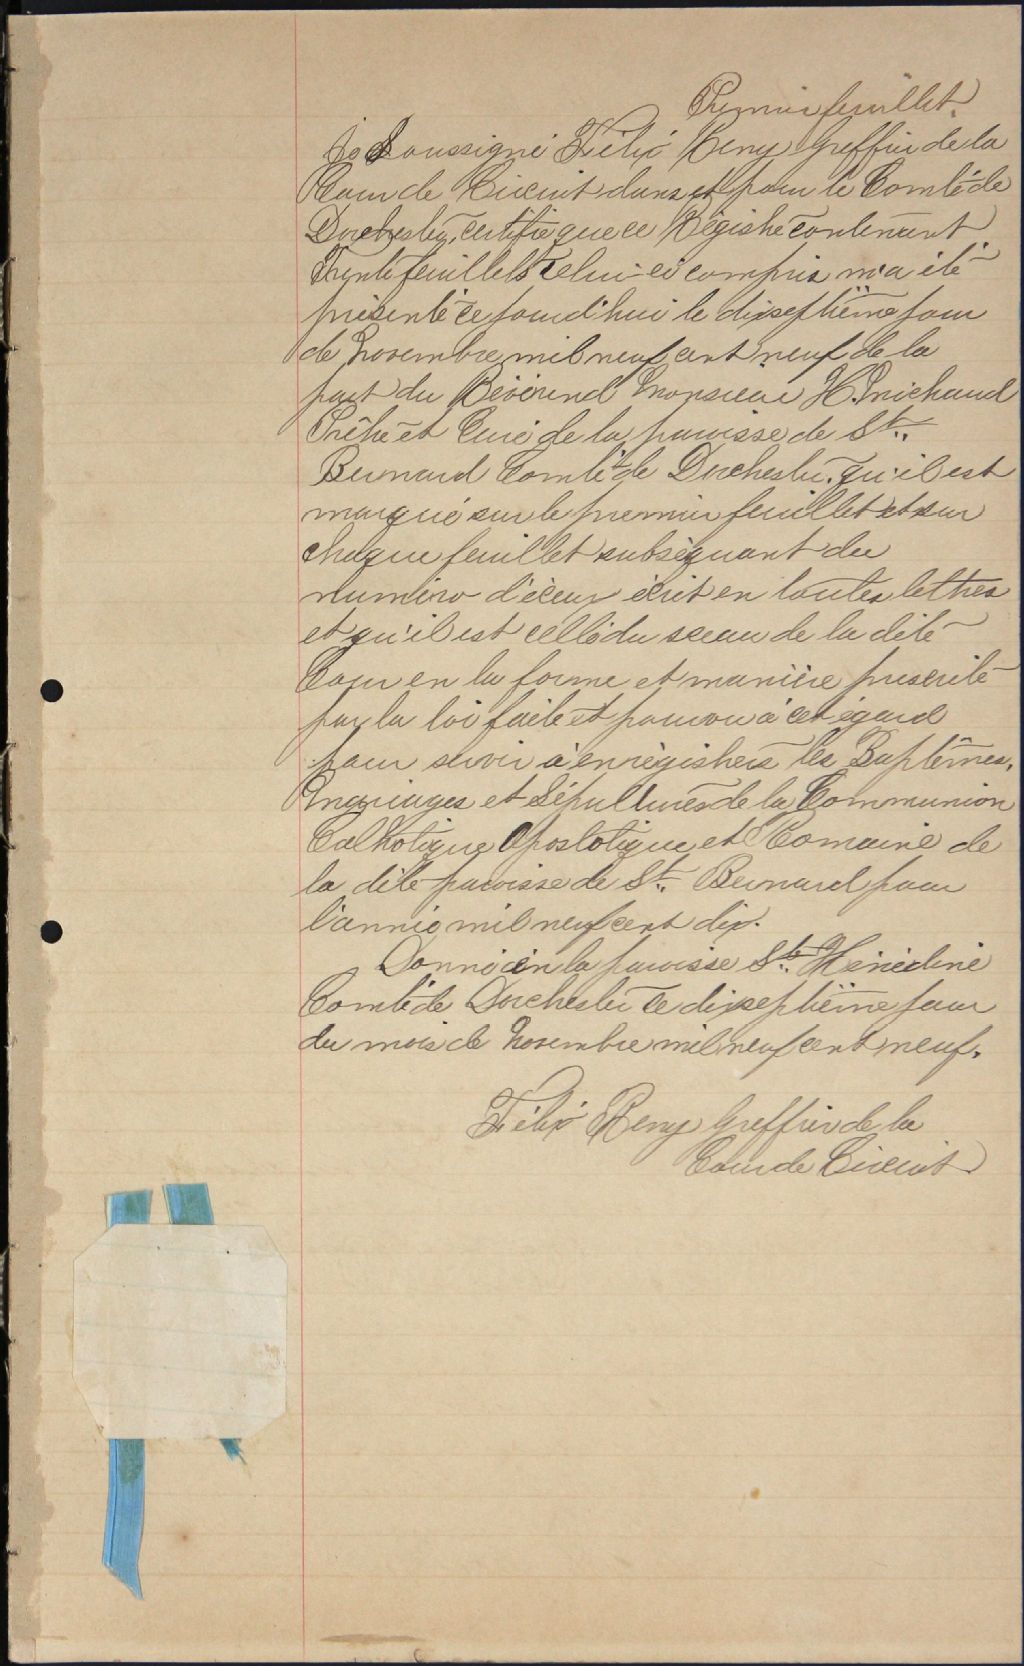 Premier feuillet.
Je Soussigné Félix Remy Greffier de la
Cour de Circuit dans et pour le Comté de
Dorchester, certifie que ce Régistre contenant
Trente feuillets celui-ci compris m'a été
présenté ce jourd'hui le dixseptième jour
de Novembre mil neuf cent neuf de la
part du Révérend Monsieur H. Michaud
Prêtre et Curé de la paroisse de St.
Bernard Comté de Dorchester, qu'il est
marqué sur le premier feuillet et sur
chaque feuillet subséquant du
numéro d'iceux écrit en toutes lettres
et qu'il est cellé du sceau de la dite
Cour en la forme et manière prescrite
par la loi faite et pourvu à cet égard
pour servir à enrégistrers les Baptêmes,
Mariages et Sépultures de la Communion
Catholique Apostolique et Romaine de
la dite paroisse de St. Bernard pour
l'année mil neuf cent dix.
Donné en la paroisse Ste. Hénédine
Comté de Dorchester ce dixseptième jour
du mois de Novembre mil neuf cent neuf.
Félix Remy Greffier de la
Cour de Circuit